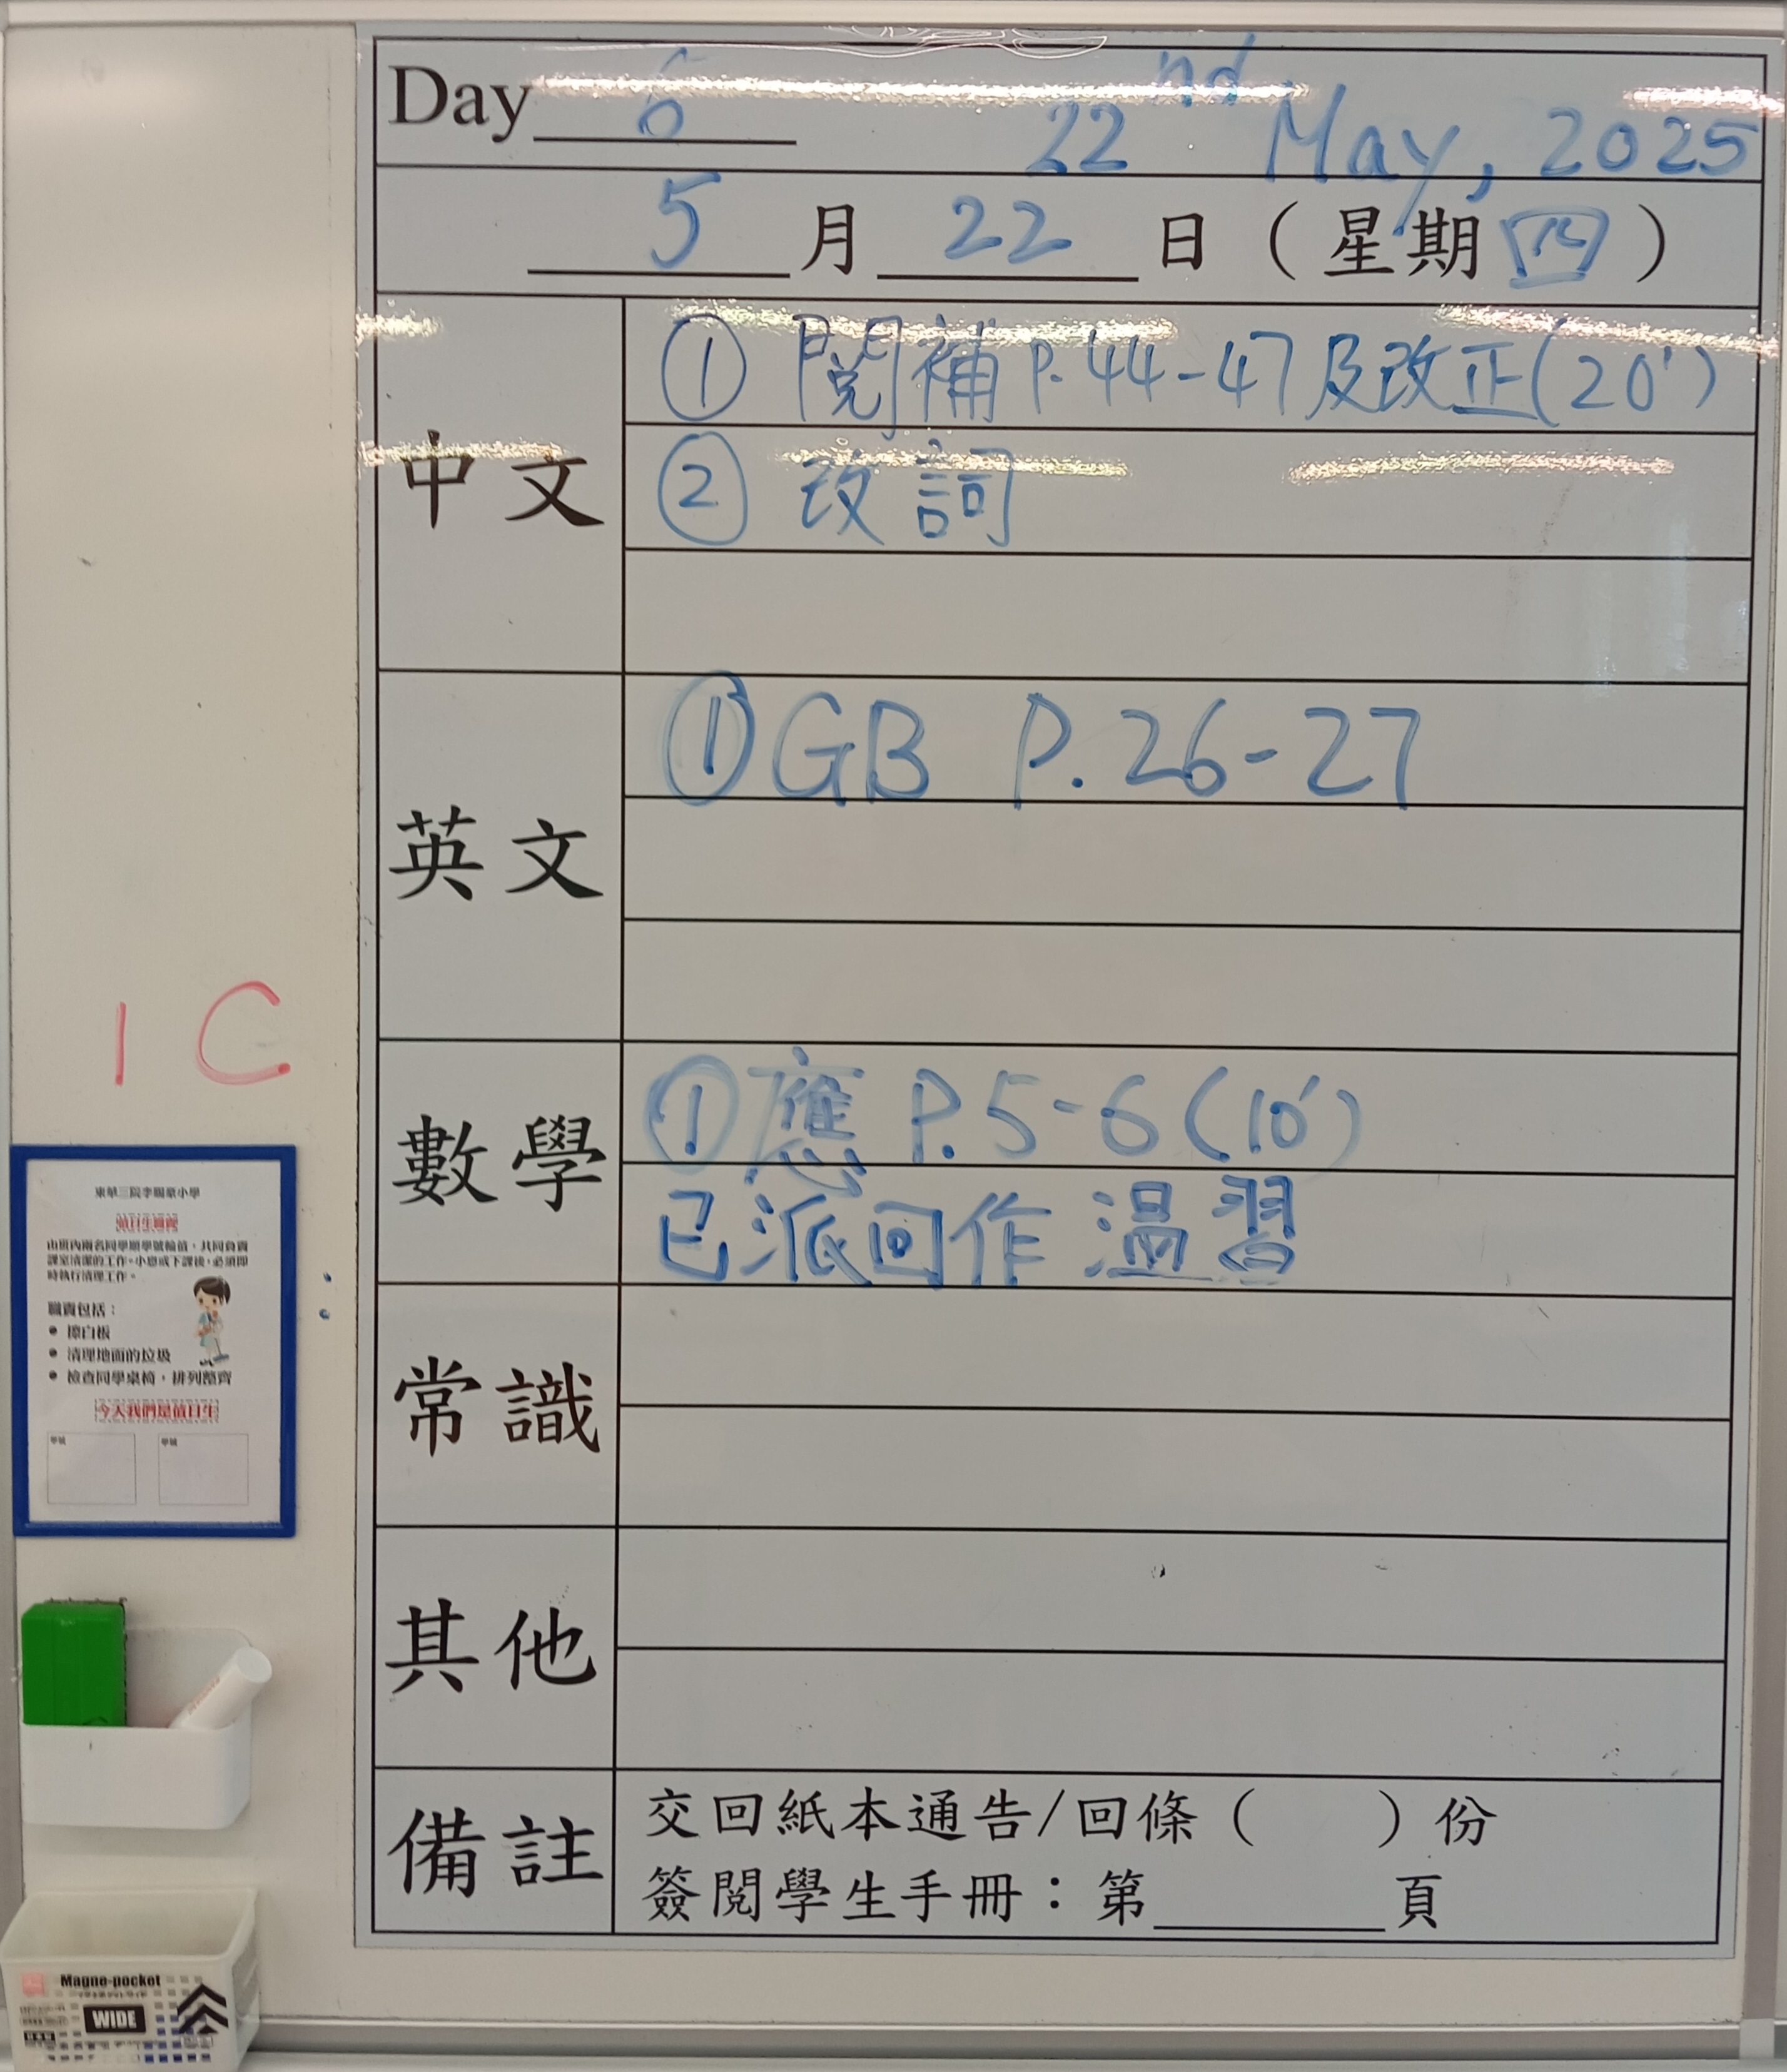 Day 6 22nd May, 2025
5月22日（星期四）
中文
① 閱補 P.44-47及改正(20')
② 改詞
英文
① GB P.26-27
數學
① 應 P.5-6(10')
已派回作溫習
常識
其他
備註
交回紙本通告/回條（　　）份
簽閱學生手冊：第______頁
1C
東華三院李賜豪小學
值日生職責
由班內兩名同學順學號輪值，共同負責
課室清潔的工作。小息或下課後，必須即
時執行清理工作。
職責包括：
• 擦白板
• 清理地面的垃圾
• 檢查同學桌椅，排列整齊
今天我們是值日生
學號 學號
Magne-pocket
WIDE